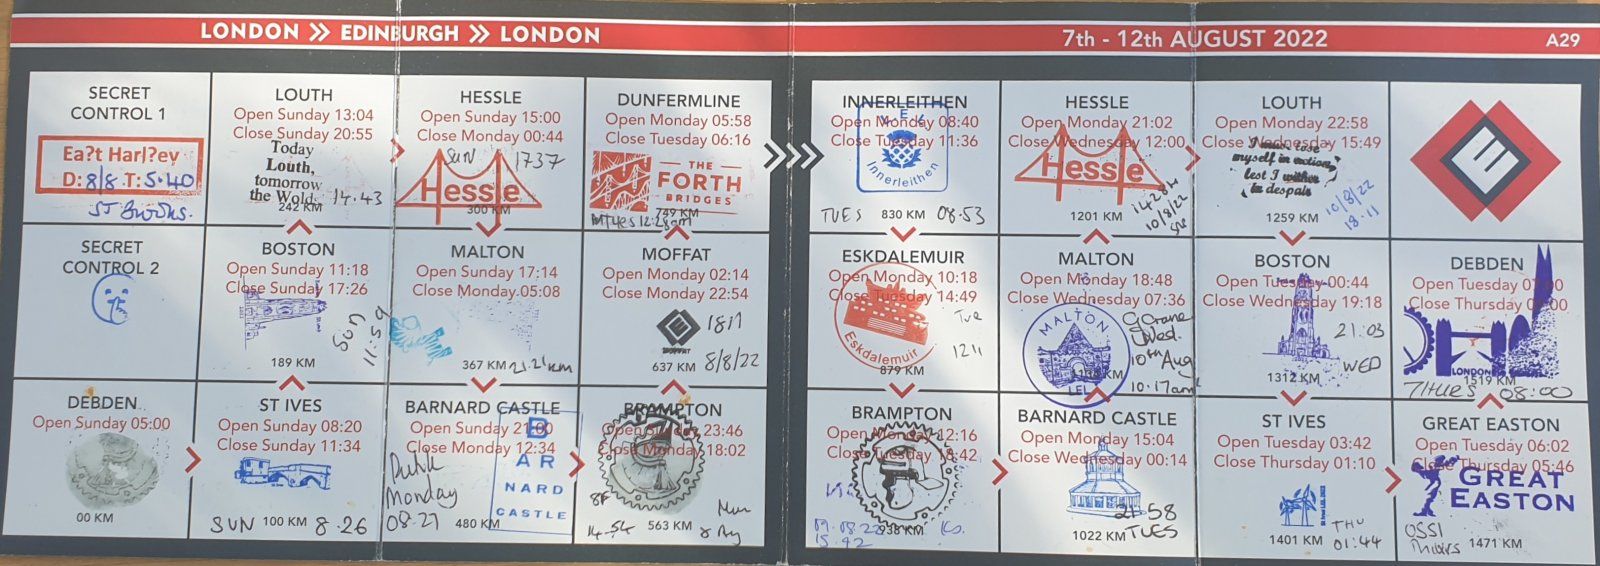 LONDON >> EDINBURGH >> LONDON
7th - 12th AUGUST 2022
A29
SECRET
CONTROL 1
Ea?t Harl?ey
D: 8/8 T: 5.40
LOUTH
Open Sunday 13:04
Close Sunday 20:55
Today
Louth,
tomorrow
the Wolds
14.43
242 KM
HESSLE
Open Sunday 15:00
Close Monday 00:44
SUN 1737
Hessle
300 KM
DUNFERMLINE
Open Monday 05:58
Close Tuesday 06:16
THE
FORTH
BRIDGES
749 KM
INNERLEITHEN
Open Monday 08:40
Close Tuesday 11:36
LEL
Innerleithen
TUES 830 KM 08.53
HESSLE
Open Monday 21:02
Close Wednesday 12:00
Hessle
14:28
10/8/22
1201 KM
LOUTH
Open Monday 22:58
Close Wednesday 15:49
I must lose
myself in motion,
lest I wither
in despair
10/8/22
18.11
1259 KM
SECRET
CONTROL 2
BOSTON
Open Sunday 11:18
Close Sunday 17:26
SUN
11:59
189 KM
MALTON
Open Sunday 17:14
Close Monday 05:08
367 KM
MOFFAT
Open Monday 02:14
Close Monday 22:54
1811
MOFFAT
637 KM 8/8/22
ESKDALEMUIR
Open Monday 10:18
Close Tuesday 14:49
Tue
Eskdalemuir
1211
879 KM
MALTON
Open Monday 18:48
Close Wednesday 07:36
MALTON
LEL
G Crane
Wed.
10th Aug
10.17am
1138 KM
BOSTON
Open Tuesday 00:44
Close Wednesday 19:18
21.03
1312 KM WED
DEBDEN
Open Tuesday 07:00
Close Thursday 08:00
LONDON
1519 KM
THURS 08:00
DEBDEN
Open Sunday 05:00
00 KM
ST IVES
Open Sunday 08:20
Close Sunday 11:34
SUN 100 KM 8.26
BARNARD CASTLE
Open Sunday 21:00
Close Monday 12:34
B
AR
NARD
CASTLE
Monday
08.21
480 KM
BRAMPTON
Open Sunday 23:46
Close Monday 18:02
14.54
563 KM
Mon
8 Aug
BRAMPTON
Open Monday 12:16
Close Tuesday 18:42
09.08.22
15.42
938 KM
BARNARD CASTLE
Open Monday 15:04
Close Wednesday 00:14
21.58
1022 KM TUES
ST IVES
Open Tuesday 03:42
Close Thursday 01:10
1401 KM
THU
01:44
GREAT EASTON
Open Tuesday 06:02
Close Thursday 05:46
GREAT
EASTON
0551
Thurs
1471 KM